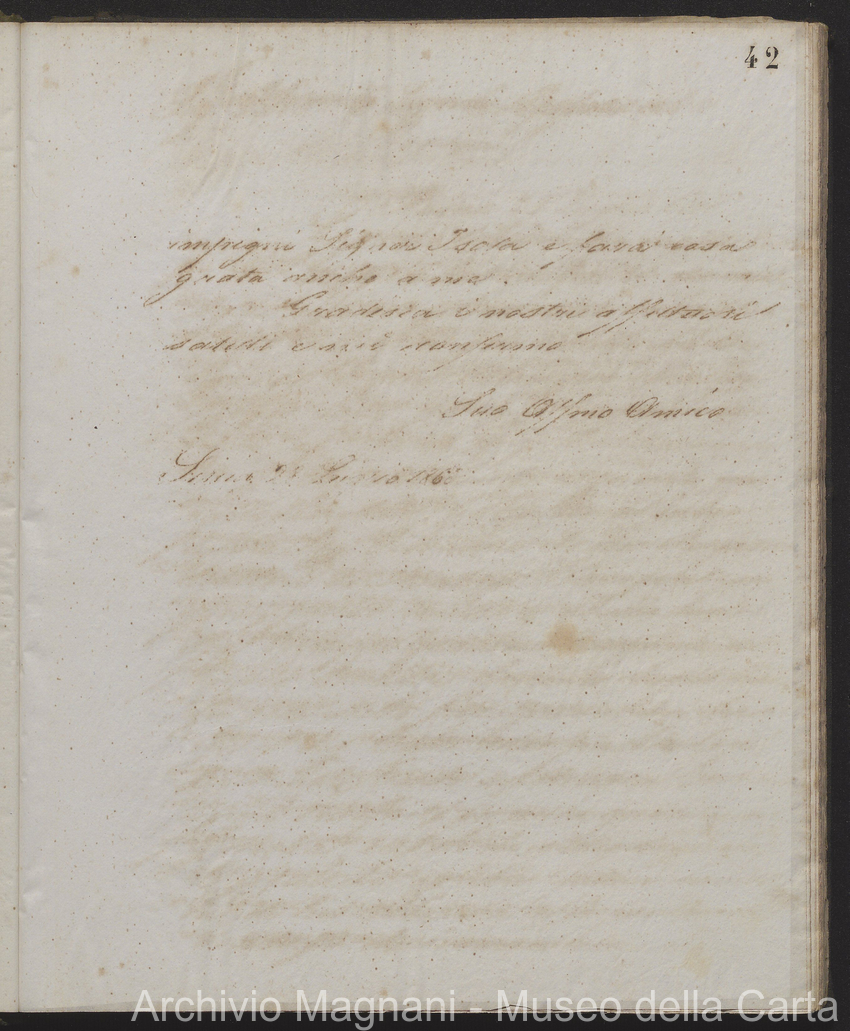 42
impegni Sig.ra Isola e farà cosa
grata anche a me.
Gradisca i nostri affettuosi
saluti e mi confermo
Suo Affmo Amico
186
Archivio Magnani - Museo della Carta